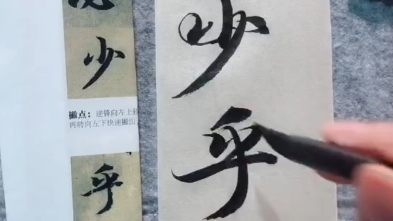 少
撇点：逆锋向左上轻
再转向左下快速撇出
乎
少
乎